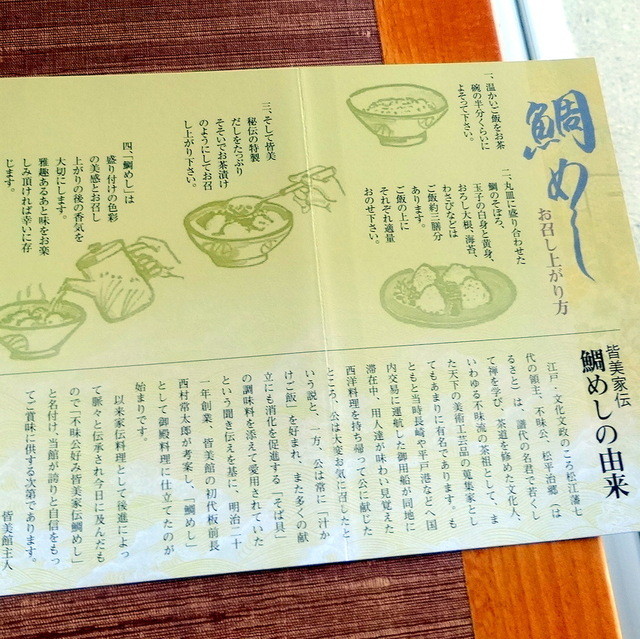 鯛めし
お召し上がり方
一、温かいご飯をお茶
碗の半分くらいに
よそって下さい。
二、丸皿に盛り合わせた
鯛のそぼろ、
玉子の白身と黄身、
おろし大根、海苔、
わさびなどは
ご飯約三膳分
あります。
ご飯の上に
それぞれ適量
おのせ下さい。
三、そして皆美
秘伝の特製
だしをたっぷり
そそいでお茶漬け
のようにしてお召
し上がり下さい。
四、「鯛めし」は
盛り付けの色彩
の美感とお召し
上がりの後の香気を
大切にします。
雅趣あるあと味をお楽
しみ頂ければ幸いに存
じます。
皆美家伝
鯛めしの由来
江戸・文化文政のころ松江藩七
代の領主、不昧公、松平治郷（は
るさと）は、譜代の名君で若くし
て禅を学び、茶道を修めた文化人、
いわゆる不昧流の茶祖として、ま
た天下の美術工芸品の蒐集家とし
てもあまりに有名であります。も
ともと当時長崎や平戸港などへ国
内交易に運航した御用船が同地に
滞在中、用人達が味わい見覚えた
西洋料理を持ち帰って公に献じた
ところ、公は大変お気に召したと
いう説と、一方、公は常に「汁か
けご飯」を好まれ、また多くの献
立にも消化を促進する「そば具」
の調味料を添えて愛用されていた
という聞き伝えを基に、明治二十
一年創業、皆美館の初代板前長
西村常太郎が考案し、「鯛めし」
として御殿料理に仕立てたのが
始まりです。
以来家伝料理として後進によっ
て脈々と伝承され今日に及んだも
ので「不昧公好み皆美家伝鯛めし」
と名付け、当館が誇りと自信をもっ
てご賞味に供する次第であります。
皆美館主人